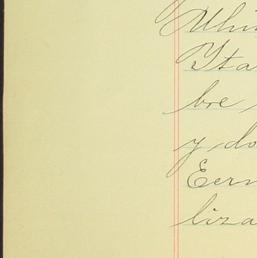 Whi
Sta
bre
y do
Eern
liza